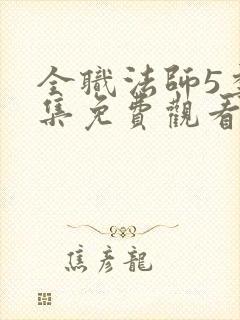 全職法師5季
集免費觀看
焦彥龍